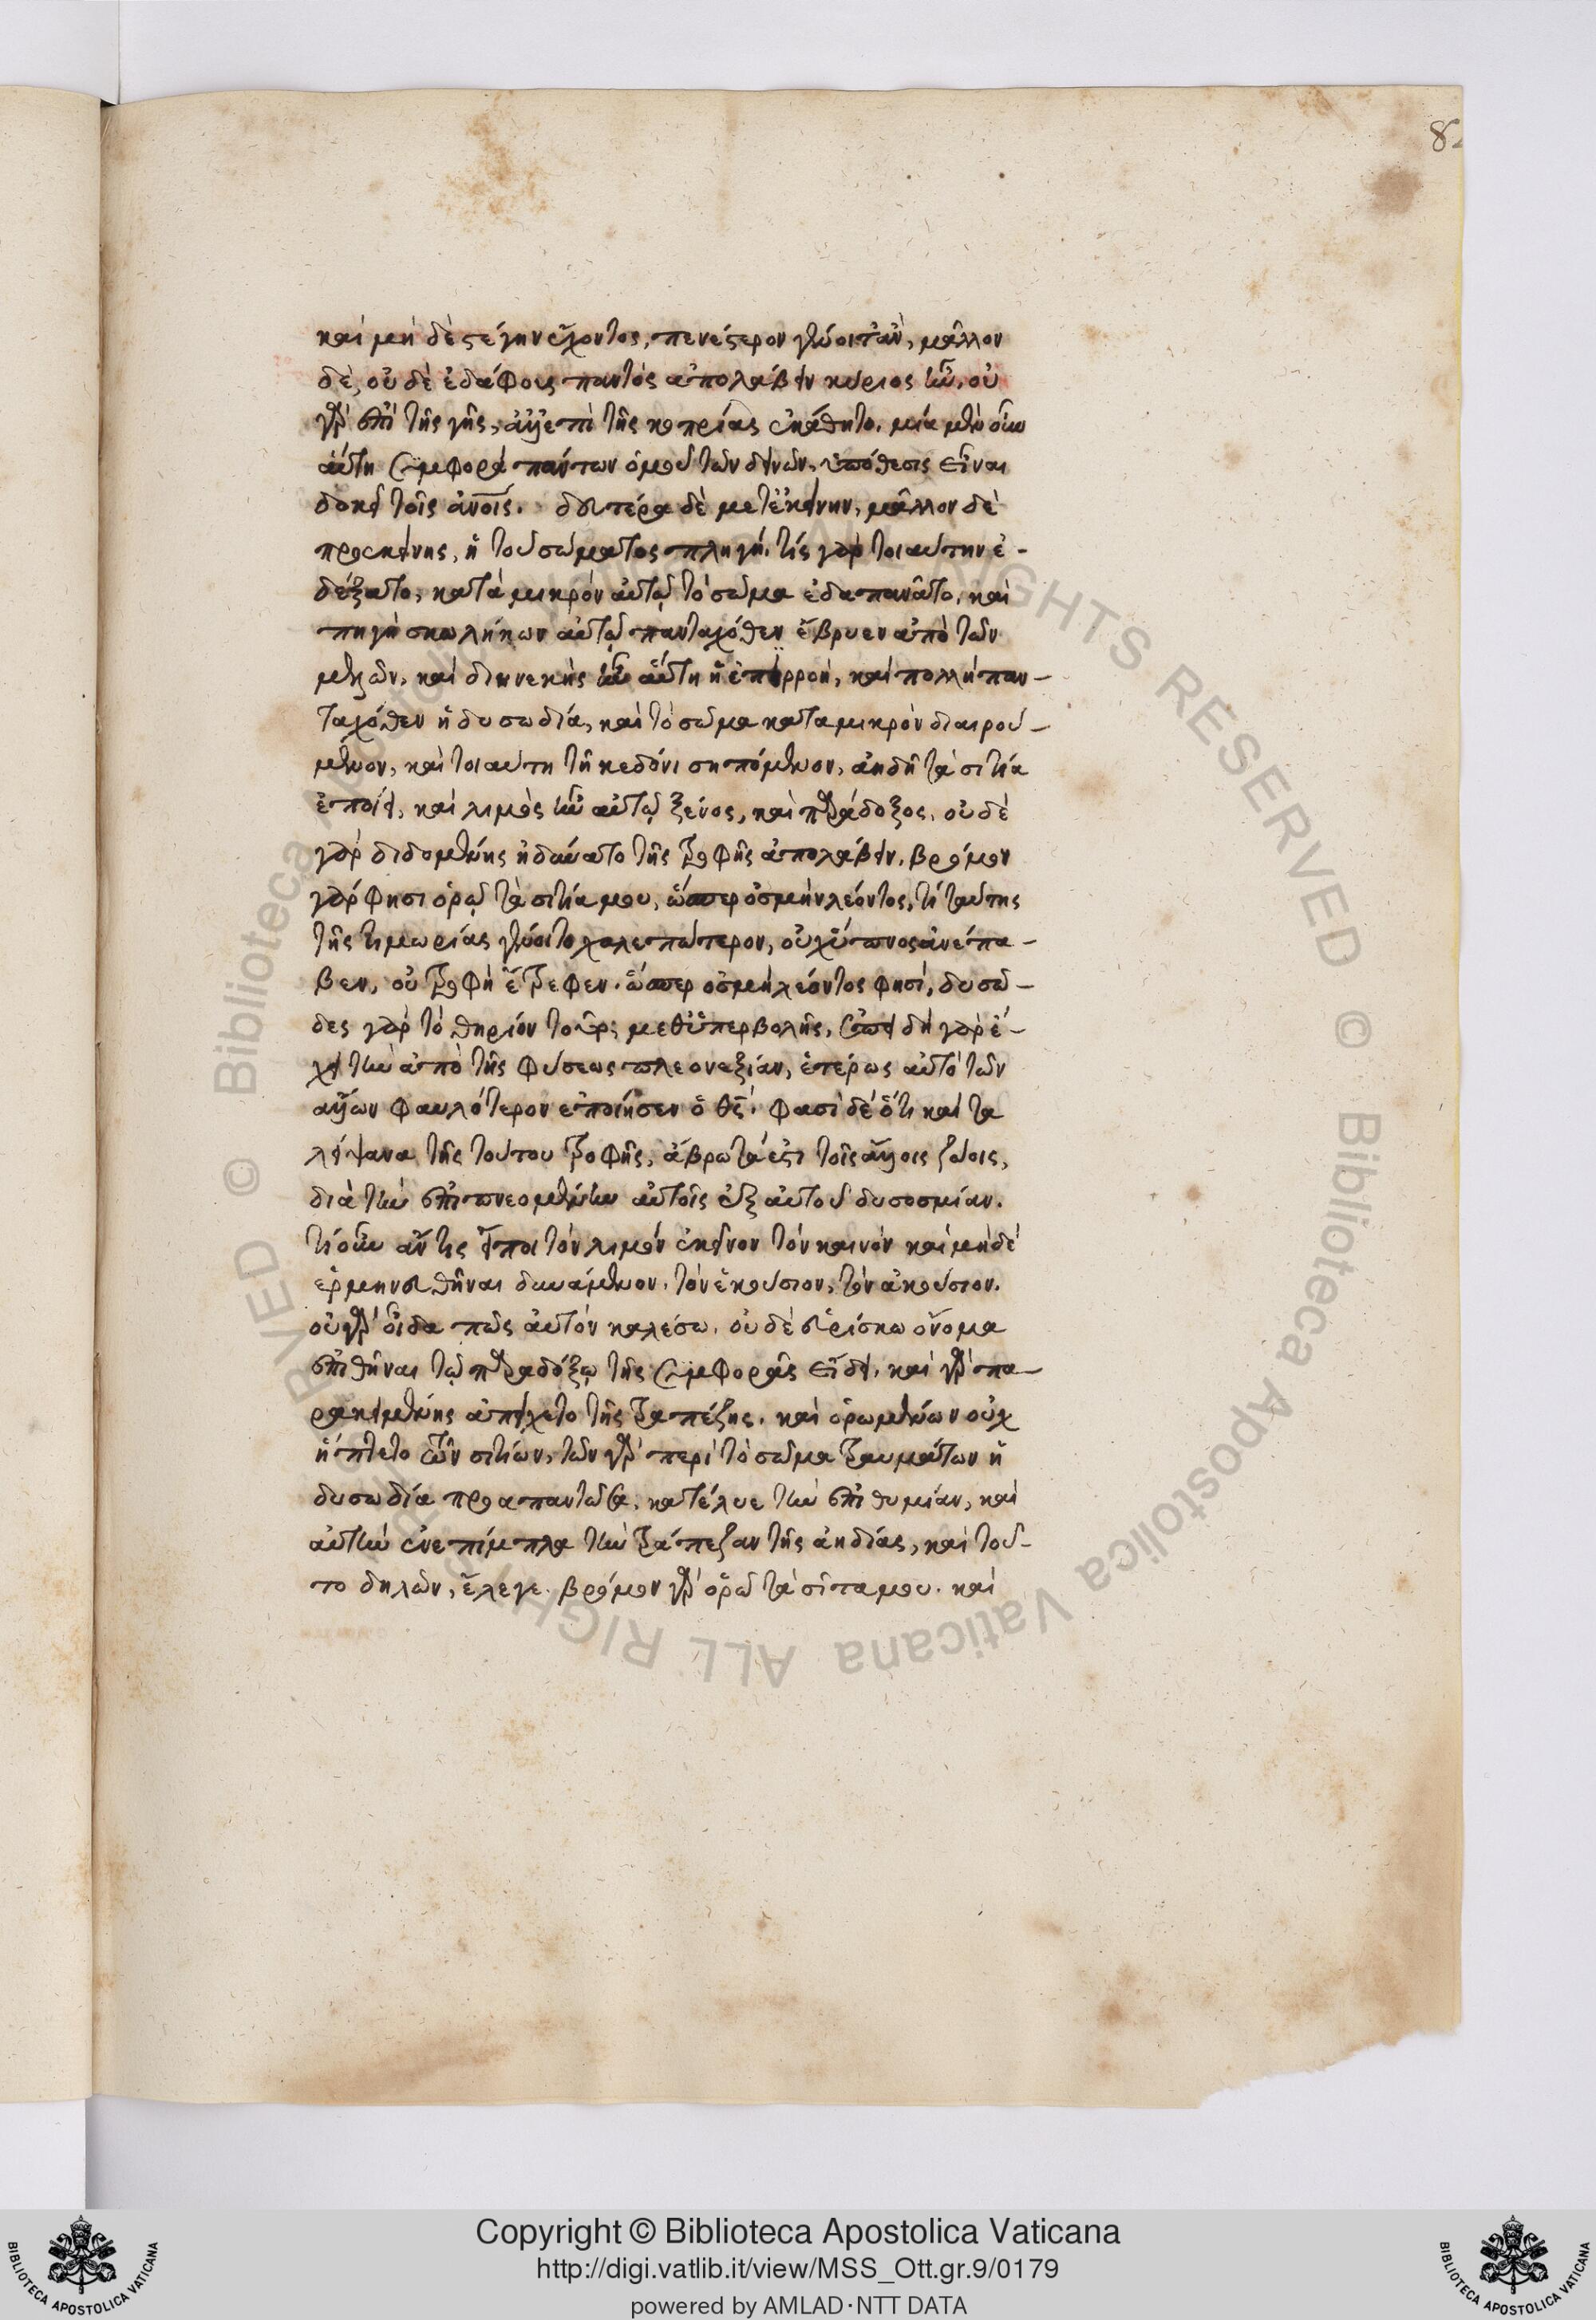 82
καὶ μὴ δὲ στέγην ἔχοντος, πενέστερον γένοιτ' ἂν, μᾶλλον
δὲ, οὐ δὲ ἐδάφους παντὸς ἀπολαβεῖν κύριος ἦν, οὐ
γὰρ ἐπὶ τῆς γῆς, ἀλλ' ἐπὶ τῆς κοπρίας ἐκάθητο. μία μὲν οὖν
αὕτη συμφορὰ πάντων ὁμοῦ τῶν δεινῶν, ὑπόθεσις εἶναι
δοκεῖ τοῖς ἀνοις. δευτέρα δὲ μετ' ἐκείνην, μᾶλλον δὲ
πρὸ ἐκείνης, ἡ τοῦ σώματος πληγή. τίς γὰρ τοιαύτην ἐ-
δέξατο, κατὰ μικρὸν αὐτῷ τὸ σῶμα ἐδαπανᾶτο, καὶ
πηγὴ σκωλήκων αὐτῷ πανταχόθεν ἔβρυεν ἀπὸ τῶν
μελῶν, καὶ διηνεκὴς ἦν αὕτη ἡ ἐπιρροή, καὶ πολλὴ παν-
ταχόθεν ἡ δυσωδία, καὶ τὸ σῶμα κατα μικρὸν διαιρού-
μενον, καὶ τοιαύτη τῇ κεδόνι σηπόμενον, ἀηδῆ τὰ σιτία
ἐποίει, καὶ λιμὸς ἦν αὐτῷ ξένος, καὶ παράδοξος. οὐ δὲ
γὰρ διδομένης ἠδύνατο τῆς τροφῆς ἀπολαβεῖν. βρόμον
γάρ φησι ὁρῶ τὰ σιτία μου, ὥσπερ ὀσμὴν λέοντος, τί ταύτης
τῆς τιμωρίας γένοιτο χαλεπώτερον, οὐχ ὕπνος ἀνέπα-
βεν, οὐ τροφὴ ἔτρεφεν. ὥσπερ ὀσμὴ λέοντος φησί, δυσῶ-
δες γὰρ τὸ θηρίον τοῦτο μεθ' ὑπερβολῆς, ἐπειδὴ γὰρ ἔ-
χει τὴν ἀπὸ τῆς φύσεως πλεονεξίαν, ἑτέρως αὐτὸ τῶν
ἄλλων φαυλότερον ἐποίησεν ὁ θς. φασὶ δὲ ὅτι καὶ τα
λείψανα τῆς τούτου τροφῆς, ἄβρωτά ἐστι τοῖς ἄλλοις ζώοις,
διὰ τὴν ἐπιπνεομένην αὐτοῖς ἐξ αὐτοῦ δυσοσμίαν.
τί οὖν ἄν τις εἴποι τὸν λιμὸν ἐκεῖνον τὸν καινὸν καὶ μὴ δὲ
ἑρμηνευθῆναι δυνάμενον. τὸν ἑκούσιον, τὸν ἀκούσιον.
οὐ γὰρ οἶδα πῶς αὐτὸν καλέσω. οὐδὲ εὑρίσκω ὄνομα
ἐπιθῆναι τῷ παραδόξῳ τῆς συμφορᾶς εἴδει. καὶ γὰρ πα-
ρακειμένης ἀπείχετο τῆς τραπέζης. καὶ ὁρωμένων οὐχ
ἥπτετο τῶν σιτίων, τῶν γὰρ περὶ τὸ σῶμα τραυμάτων ἡ
δυσωδία προαπαντῶσα, κατέλυε τὴν ἐπιθυμίαν, καὶ
αὐτὴν ἐνεπίμπλα τὴν τράπεζαν τῆς ἀηδίας, καὶ τοῦ-
το δηλῶν, ἔλεγε. βρόμον γὰρ ὁρῶ τὰ σῖτα μου. καὶ
© Biblioteca Apostolica Vaticana ALL RIGHTS RESERVED
Copyright © Biblioteca Apostolica Vaticana
http://digi.vatlib.it/view/MSS_Ott.gr.9/0179
powered by AMLAD·NTT DATA
BIBLIOTECA APOSTOLICA VATICANA
BIBLIOTECA APOSTOLICA VATICANA